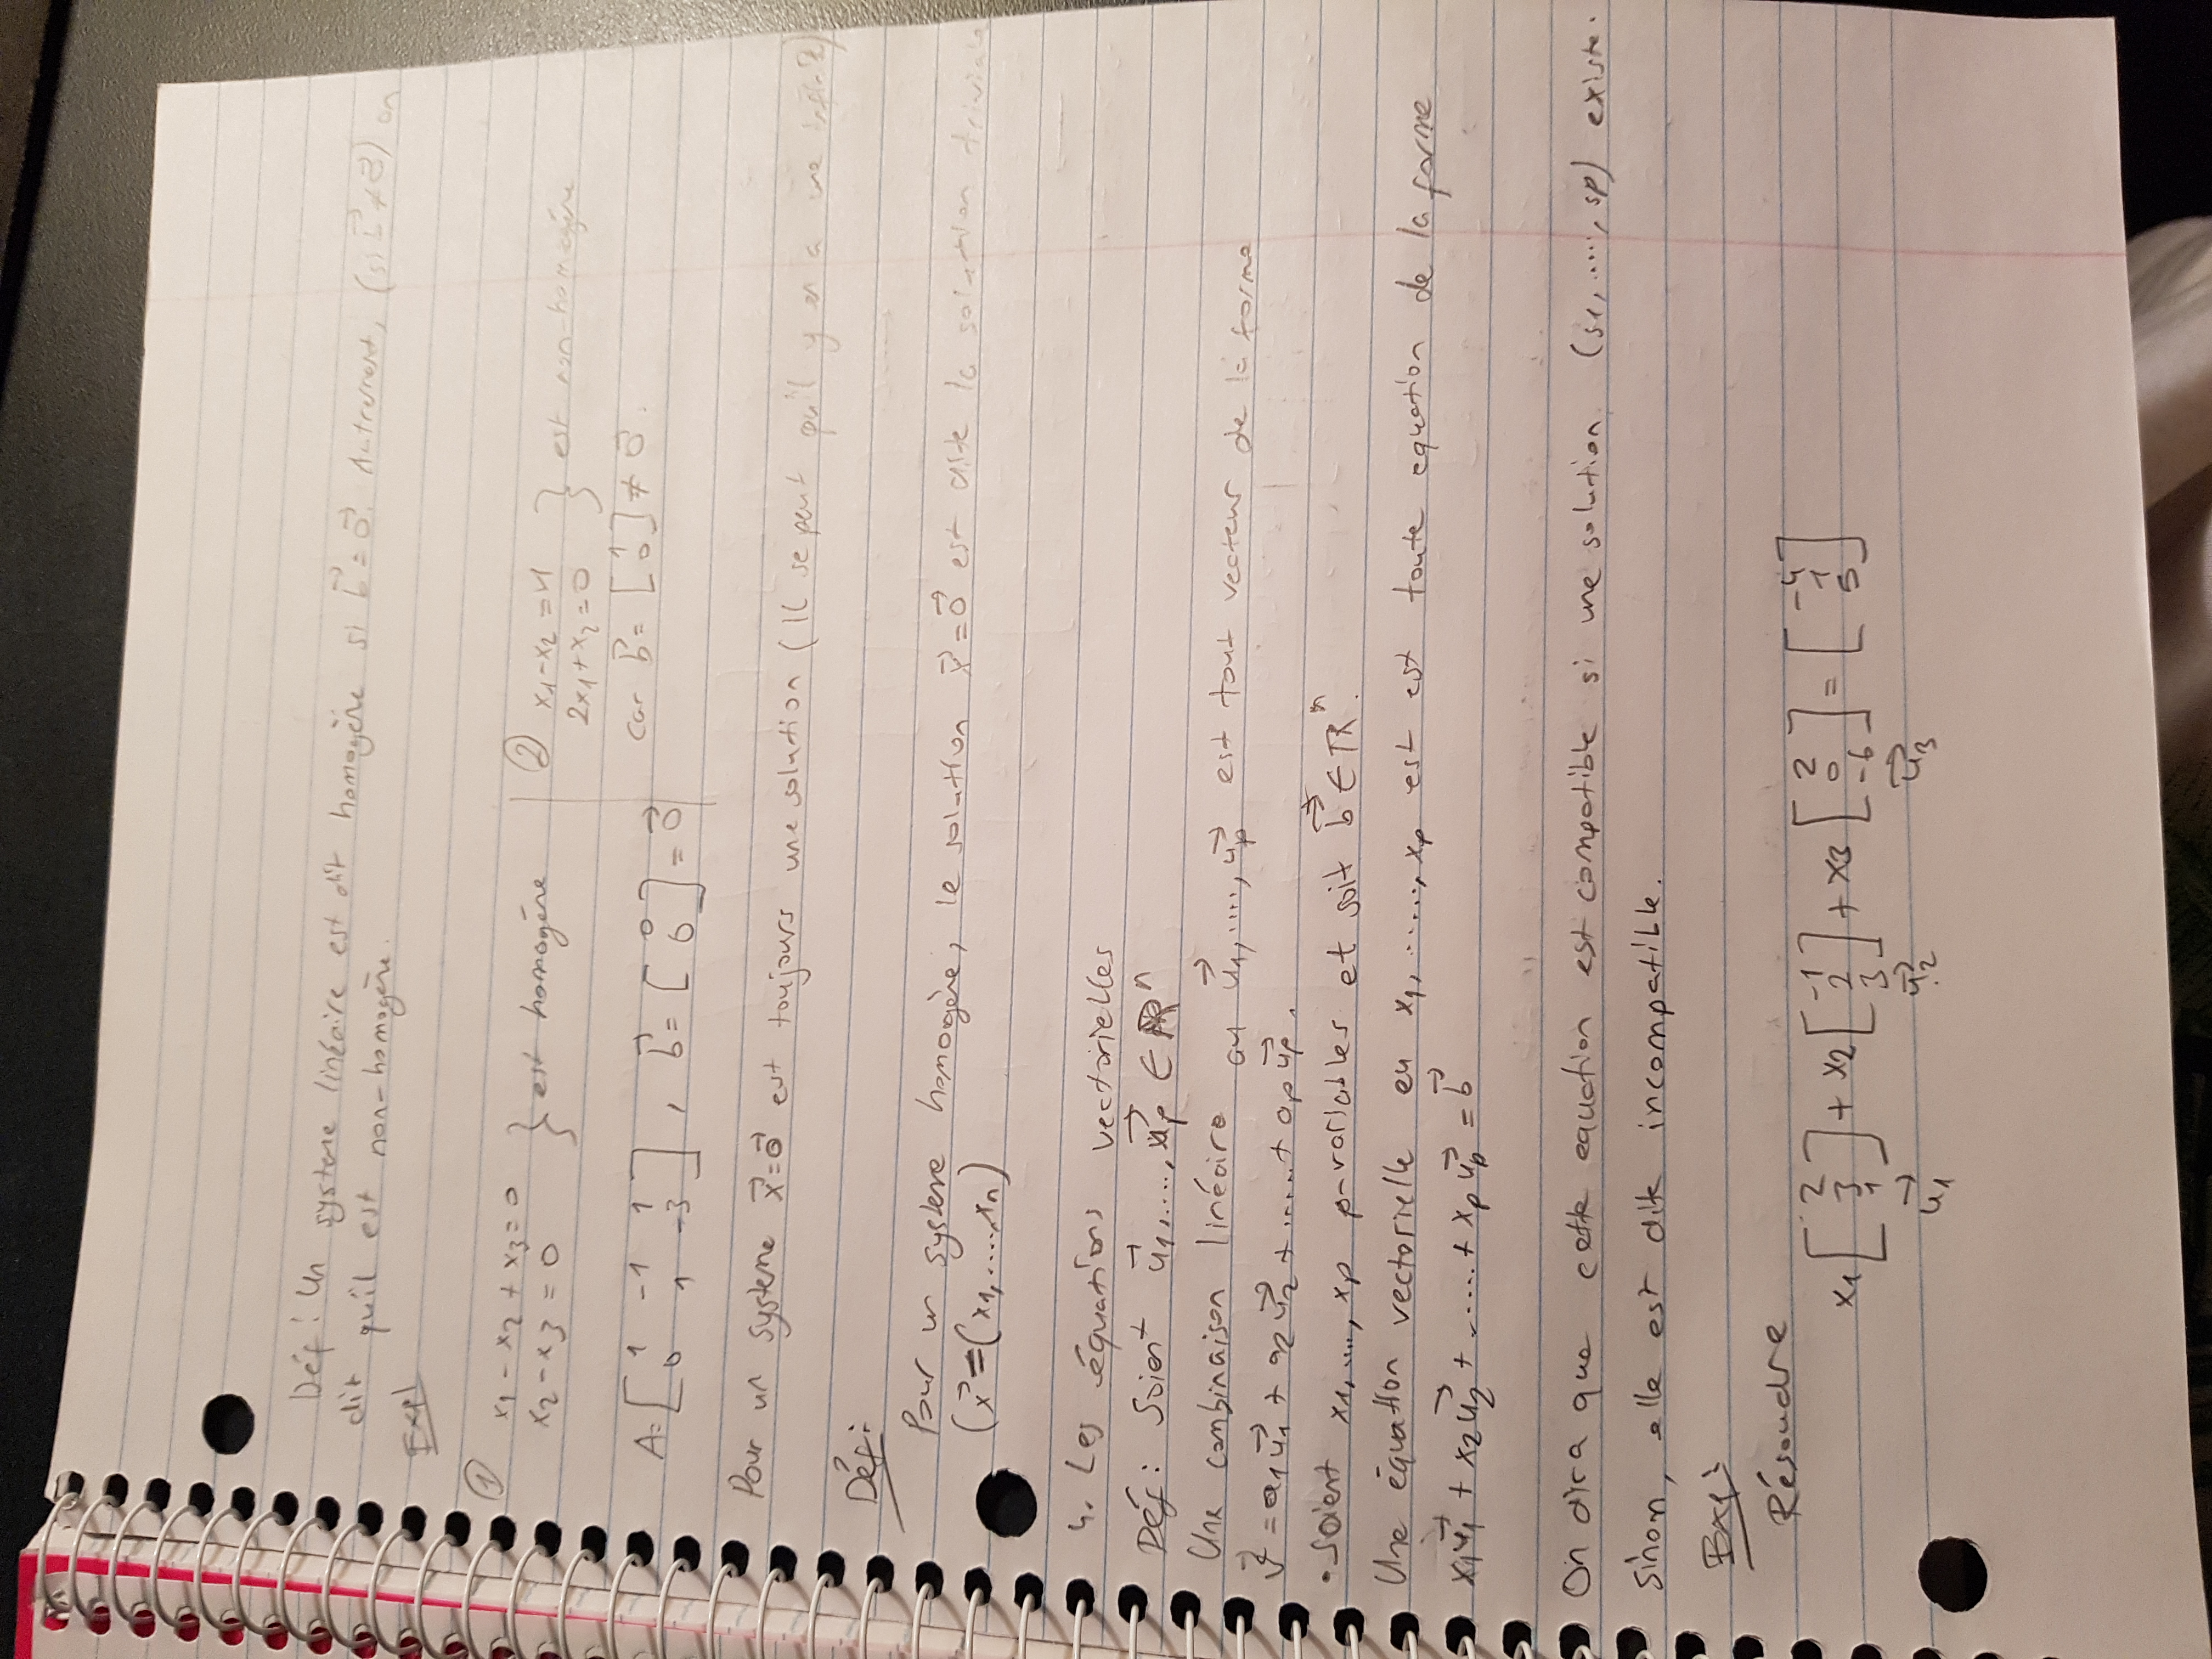 Déf : Un système linéaire est dit homogène si b⃗ = 0⃗. Autrement, (si b⃗ ≠ 0⃗) on
dit qu'il est non-homogène.
Exp1
① x1 - x2 + x3 = 0 } est homogène
x2 - x3 = 0
② x1 - x2 = 1 } est non-homogène
2x1 + x2 = 0
car b⃗ = [1 0] ≠ 0⃗.
A = [1 -1 1
0 1 -3], b⃗ = [0 0] = 0⃗
Pour un système x⃗ = 0⃗ est toujours une solution (Il se peut qu'il y en a une infinité)
Déf :
Pour un système homogène, le solution x⃗ = 0⃗ est dite la solution triviale
(x⃗ = (x1, ....., xn)
4. Les équations vectorielles
Déf : Soient u⃗1, ...., u⃗p ∈ ℝⁿ
Une combinaison linéaire au u⃗1, ...., u⃗p est tout vecteur de la forme
v⃗ = a1u⃗1 + a2u⃗2 + ...... + apu⃗p.
• Soient x1, ...., xp p-variables et soit b⃗ ∈ ℝⁿ.
Une équation vectorielle en x1, ......, xp est est toute equation de la forme
x1u⃗1 + x2u⃗2 + ...... + xpu⃗p = b⃗
On dira que cette equation est compatible si une solution (s1, ....., sp) existe.
Sinon, elle est dite incompatible.
Exp1
Résoudre
x1 [2 3 1] + x2 [-1 2 3] + x3 [2 0 -6] = [-4 1 5]
u⃗1 u⃗2 u⃗3